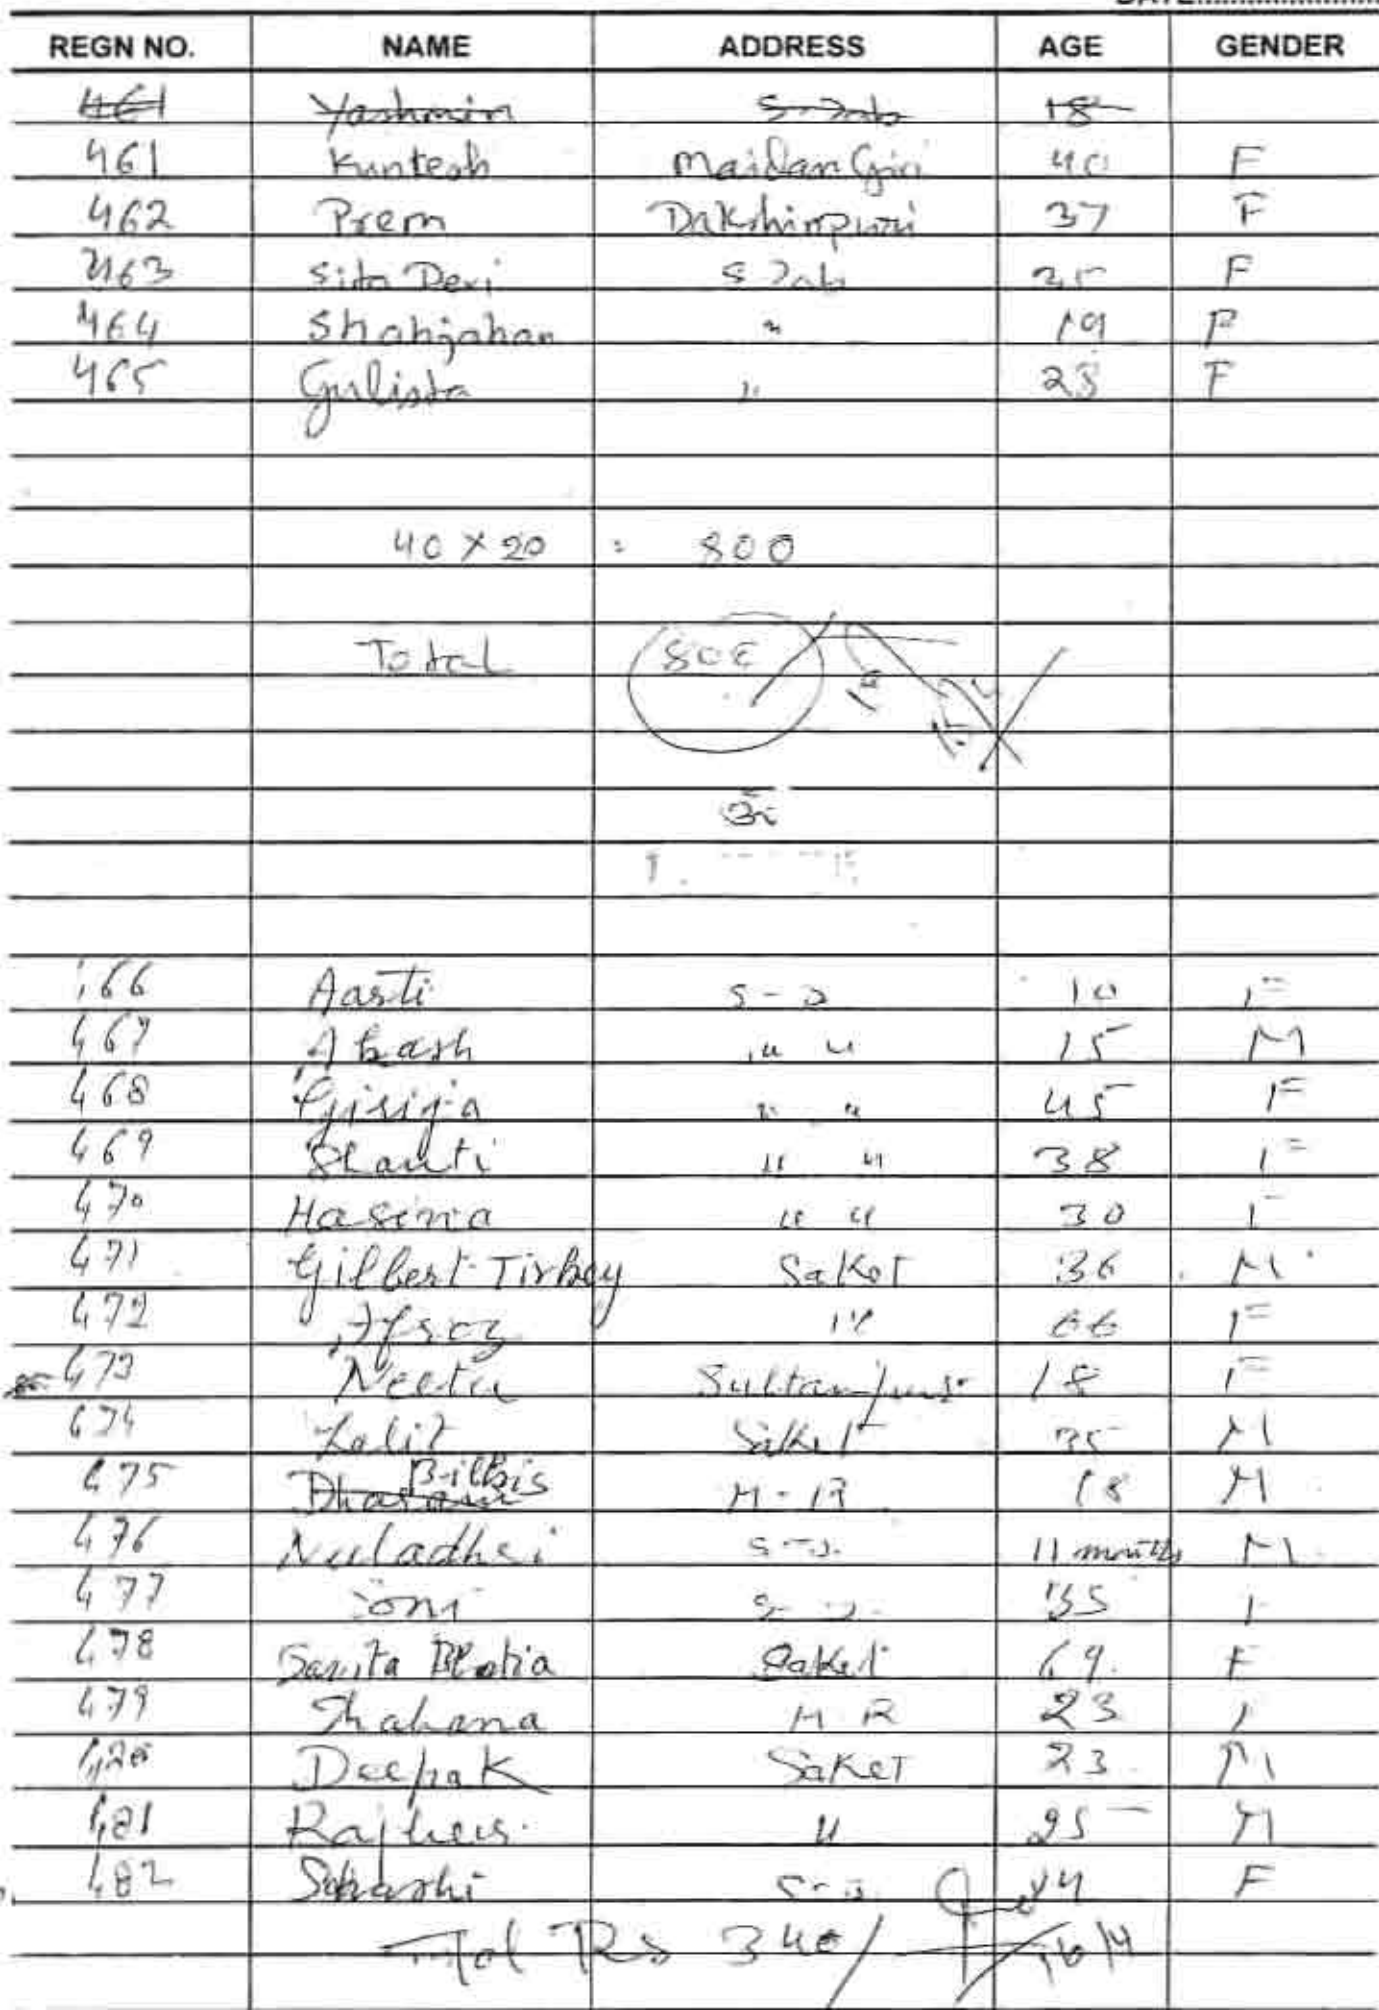 REGN NO. NAME ADDRESS AGE GENDER
461 Yashmin 18
461 Kuntesh Maidan Giri 40 F
462 Prem Dakshinpuri 37 F
463 Sita Devi 35 F
464 Shahjahan " 19 F
465 Gulista " 23 F
40 X 20 = 800
Total 800
66 Aarti S-D 10 F
467 Akash " " 15 M
468 Girija " " 45 F
469 Shanti " " 38 F
470 Hasina " " 30 F
471 Gilbert Tirkey Saket 36 M
472 Afroz " 66 F
473 Neetu Sultanpur 18 F
474 Lalit Saket 35 M
475 Bilkis H-R 18 M
476 S-D 11 months M
477 Soni S-D 35 F
478 Sarita Bhatia Saket 69 F
479 H R 23 F
480 Deepak Saket 23 M
481 " 25 M
482 Sakashi S-D F
Total Rs 340/